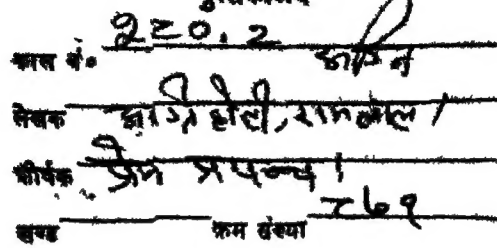 काल नं० २८०.२ अग्नि
लेखक अग्निहोत्री, रामलाल।
शीर्षक प्रेम प्रपञ्च।
खण्ड क्रम संख्या ८७१